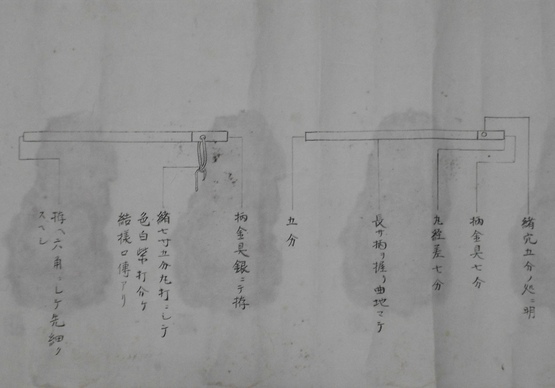 緒穴五分ノ処ニ明
柄金具七分
丸経差七分
長サ拘リ握リ曲地マデ
五分
柄金具銀ニテ拵
緒七寸五分丸打ニシテ
色白紫打分ケ
結様口傳アリ
拵ヘ六角ニシテ先細ク
スベシ